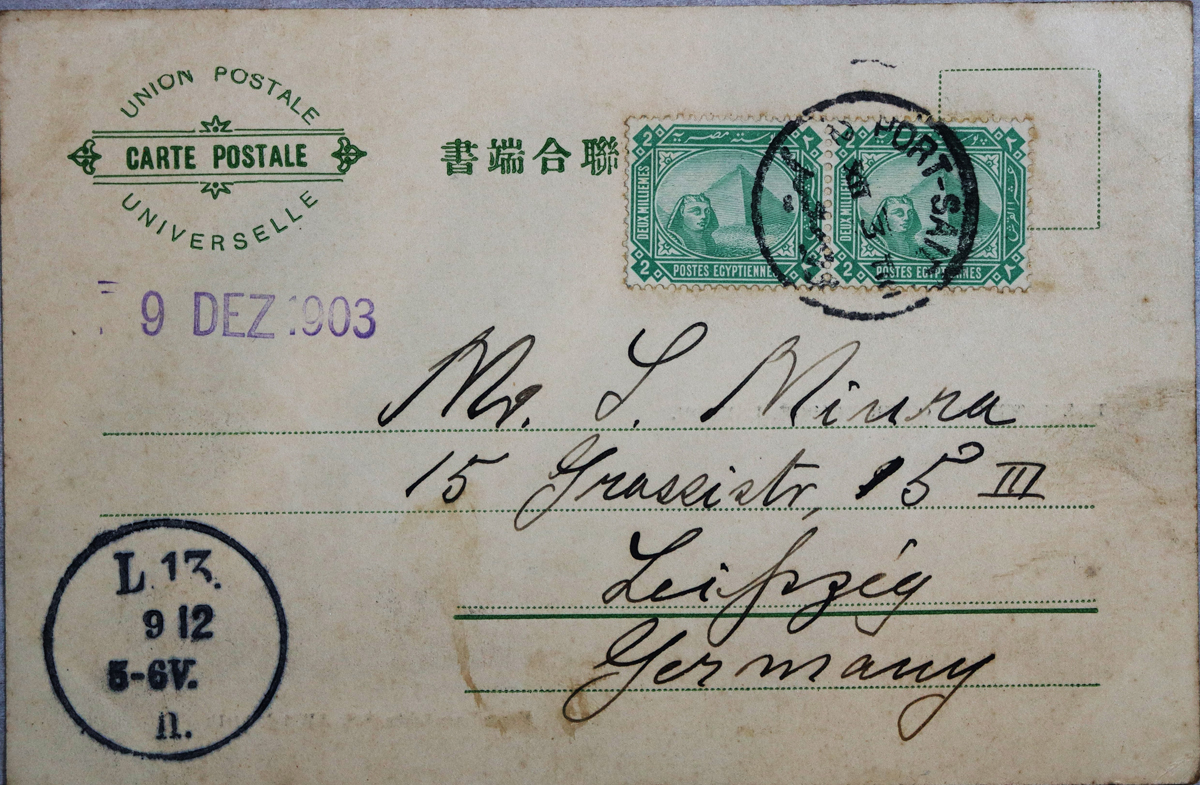 UNION POSTALE
CARTE POSTALE
UNIVERSELLE
書端合聯
2 بوستة مصرية ٢
DEUX MILLIEMES
2 POSTES EGYPTIENNES
DEUX MILLIEMES
2 POSTES EGYPTIENNES ٢
PORT-SAID
XII 3
9 DEZ 1903
Mr. S. Miura
15 Grassistr, 15 III
Leipzig
Germany
L.13.
9 12
5-6V.
n.